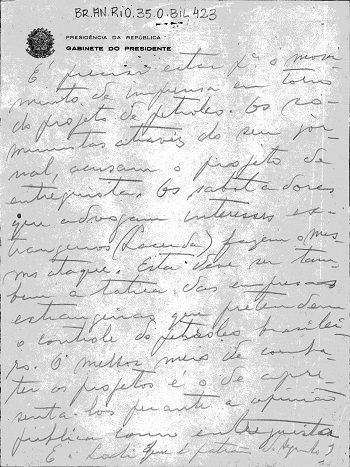 BR.AN.RIO.35.0.BIL.423
PRESIDÊNCIA DA REPÚBLICA
GABINETE DO PRESIDENTE
É preciso estar o movi
mento de imprensa em torno
do projeto de petroleo. Os co-
munistas através do seu jor-
nal, acusam o projeto de
entreguista. Os sabotadores
que advogam interesses es-
trangeiros (Lacerda) fazem o mes-
mo ataque. Esta deve ser tam-
bem a tatica das empresas
estrangeiras que pretendem
o controle do petroleo brasilei-
ro. O melhor meio de comba-
ter os projetos é o de apre-
senta-los perante a opinião
publica como entreguistas
É